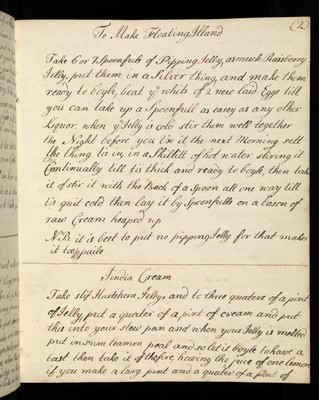 To Make Floating Island (2)
Take 6 or 7 Spoonfuls of Pipping Jelly, as much Rasberry
Jelly, put them in a Silver thing, and make them
ready to boyle, beat yͤ whits of 2 new laid Eggs till
you can take up a Spoonfull as easey as any other
Liquor, when yͤ Jelly is cold stir them well together
the Night before you Use it the next Morning sett
the thing tis in, in a Skillitt of hot water stiring it
Continually till tis thick and ready to boyle, then take
it of stir it with the Back of a Spoon all one way till
tis quit cold then lay it by Spoonfulls on a bason of
raw Cream heaped up
NB. it is best to put no pipping Jelly for that makes
it too paile
India Cream
Take stif Hartshorn Jelly, and to three quaters of a pint
of Jelly put a quater of a pint of cream and put
this into your stew pan and when your Jelly is melted
put in sum leamon peal and so let it boyle to have a
tast then take it of the fire, having the juce of one lemon
if you make a larg pint and a quater of a pint of